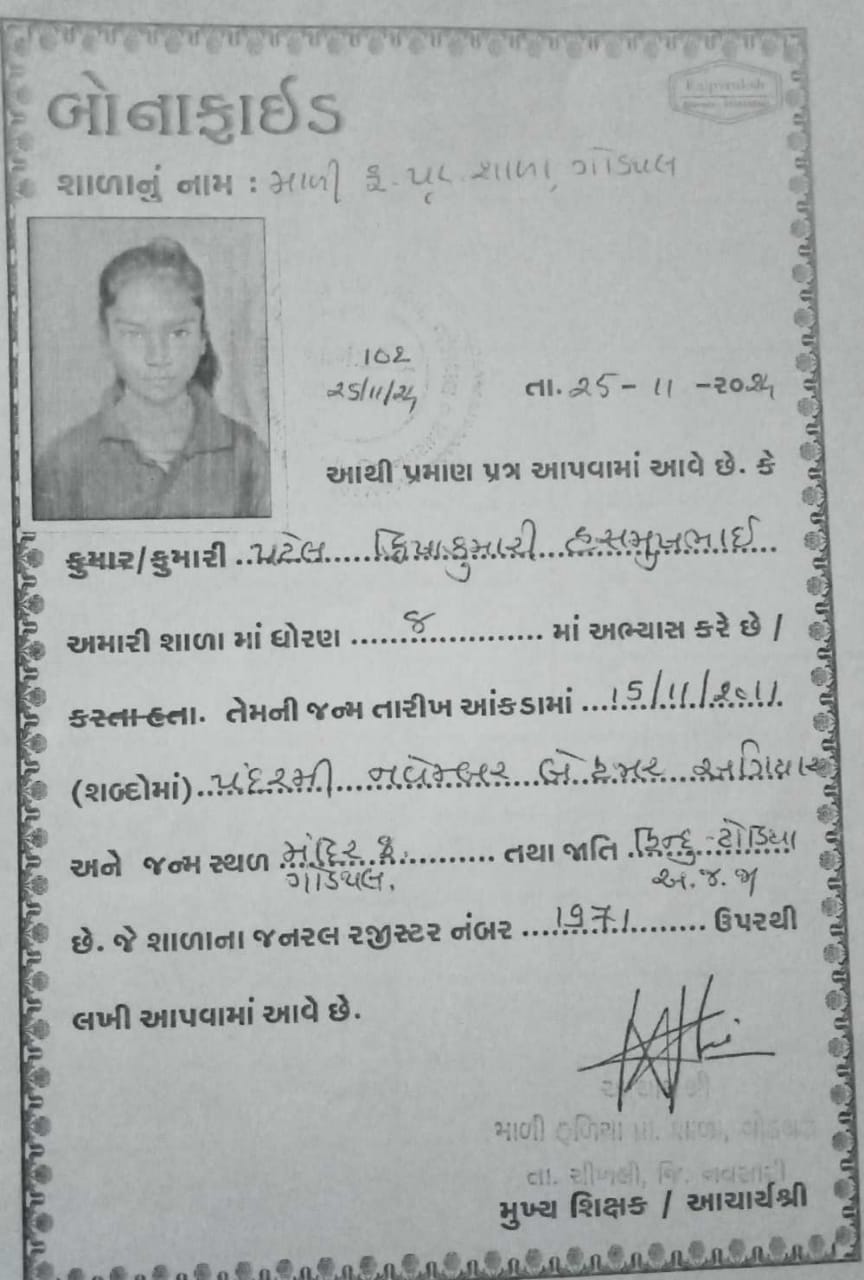 બોનાફાઈડ
શાળાનું નામ : માળી ફ. પ્રા. શાળા, ગોડથલ
102
25/11/24
તા. 25 - 11 - ૨૦૨4
આથી પ્રમાણ પત્ર આપવામાં આવે છે. કે
કુમાર/કુમારી ..પટેલ..... ક્રિષાકુમારી... હસમુખભાઈ...
અમારી શાળા માં ધોરણ .....૪................ માં અભ્યાસ કરે છે /
કરતા હતા. તેમની જન્મ તારીખ આંકડામાં ...15/11/2011.
(શબ્દોમાં)..પંદરમી....નવેમ્બર...બે હજાર...અગિયાર
અને જન્મ સ્થળ મંદિર ફ............ તથા જાતિ .હિન્દુ-ઢોડિયા
ગોડથલ. અ.જ.જા
છે. જે શાળાના જનરલ રજીસ્ટર નંબર .....1971......... ઉપરથી
લખી આપવામાં આવે છે.
માળી ફળિયા પ્રા. શાળા, ગોડથલ
તા. ચીખલી, જિ. નવસારી
મુખ્ય શિક્ષક / આચાર્યશ્રી